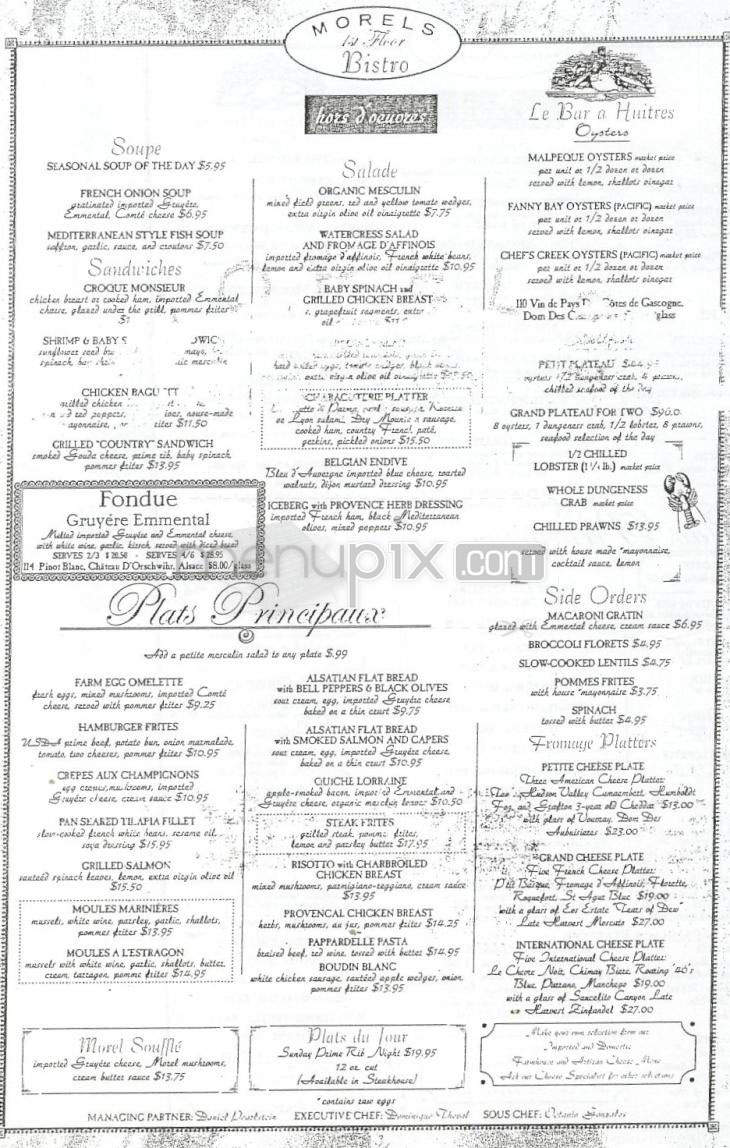 MORELS
1st Floor
Bistro
hors d'oeuvres
Soupe
SEASONAL SOUP OF THE DAY $5.95
FRENCH ONION SOUP
gratinated imported Gruyére,
Emmental, Comté cheese $6.95
MEDITERRANEAN STYLE FISH SOUP
saffron, garlic, sauce, and croutons $7.50
Sandwiches
CROQUE MONSIEUR
chicken breast or cooked ham, imported Emmental
cheese, glazed under the grill, pommes frites
SHRIMP & BABY
sunflower seed mayo,
spinach, mesculin
CHICKEN
grilled chicken
red peppers, house-made
mayonnaise, $11.50
GRILLED "COUNTRY" SANDWICH
smoked Gouda cheese, prime rib, baby spinach,
pommes frites $13.95
Fondue
Gruyére Emmental
Melted imported Gruyére and Emmental cheese,
with white wine, garlic, kirsch, served with diced bread
SERVES 2/3 $ 21.50 - SERVES 4/6 $ 28.95
114 Pinot Blanc, Château D'Orschwihr, Alsace $8.00/glass
Salade
ORGANIC MESCULIN
mixed field greens, red and yellow tomato wedges,
extra virgin olive oil vinaigrette $7.75
WATERCRESS SALAD
AND FROMAGE D'AFFINOIS
imported fromage d'affinois, French white beans,
lemon and extra virgin olive oil vinaigrette $10.95
BABY SPINACH and
GRILLED CHICKEN BREAST
grapefruit segments, extra
oil
eggs, tomato wedges, black olives,
extra virgin olive oil vinaigrette
CHARACUTERIE PLATTER
de Lyon salami, Dry sausage,
cooked ham, country French paté,
gerkins, pickled onions $15.50
BELGIAN ENDIVE
Bleu d'Auvergne imported blue cheese, roasted
walnuts, dijon mustard dressing $10.95
ICEBERG with PROVENCE HERB DRESSING
imported French ham, black Mediterranean
olives, mixed peppers $10.95
Le Bar a Huitres
Oysters
MALPEQUE OYSTERS market price
per unit or 1/2 dozen or dozen
served with lemon, shallots vinegar
FANNY BAY OYSTERS (PACIFIC) market price
per unit or 1/2 dozen or dozen
served with lemon, shallots vinegar
CHEF'S CREEK OYSTERS (PACIFIC) market price
per unit or 1/2 dozen or dozen
served with lemon, shallots vinegar
110 Vin de Pays Côtes de Gascogne,
Dom Des glass
PETIT PLATEAU
oysters, 1/2 dungeness crab, prawns,
chilled seafood of the day
GRAND PLATEAU FOR TWO
8 oysters, 1 dungeness crab, 1/2 lobster, 8 prawns,
seafood selection of the day
1/2 CHILLED
LOBSTER (1 1/4 lb.) market price
WHOLE DUNGENESS
CRAB market price
CHILLED PRAWNS $13.95
served with house made *mayonnaise,
cocktail sauce, lemon
menupix.com
Plats Principaux
Add a petite mesculin salad to any plate $.99
FARM EGG OMELETTE
fresh eggs, mixed mushrooms, imported Comté
cheese, served with pommes frites $9.25
HAMBURGER FRITES
USDA prime beef, potato bun, onion marmalade,
tomato, two cheeses, pommes frites $10.95
CREPES AUX CHAMPIGNONS
egg crepes, mushrooms, imported
Gruyére cheese, cream sauce $10.95
PAN SEARED TILAPIA FILLET
slow-cooked french white beans, sesame oil,
soya dressing $15.95
GRILLED SALMON
sautéed spinach leaves, lemon, extra virgin olive oil
$15.50
MOULES MARINIÈRES
mussels, white wine, parsley, garlic, shallots,
pommes frites $13.95
MOULES A L'ESTRAGON
mussels with white wine, garlic, shallots, butter,
cream, tarragon, pommes frites $14.95
ALSATIAN FLAT BREAD
with BELL PEPPERS & BLACK OLIVES
sour cream, egg, imported Gruyére cheese
baked on a thin crust $9.75
ALSATIAN FLAT BREAD
with SMOKED SALMON AND CAPERS
sour cream, egg, imported Gruyére cheese,
baked on a thin crust $10.95
QUICHE LORRAINE
apple-smoked bacon, imported Emmental and
Gruyére cheese, organic mesclun leaves $10.50
STEAK FRITES
grilled steak, pommes frites,
lemon and parsley butter $17.95
RISOTTO with CHARBROILED
CHICKEN BREAST
mixed mushrooms, parmigiano-reggiano, cream sauce
$13.95
PROVENCAL CHICKEN BREAST
herbs, mushrooms, au jus, pommes frites $14.25
PAPPARDELLE PASTA
braised beef, red wine, tossed with butter $14.95
BOUDIN BLANC
white chicken sausage, sautéed apple wedges, onion,
pommes frites $13.95
Side Orders
MACARONI GRATIN
glazed with Emmental cheese, cream sauce $6.95
BROCCOLI FLORETS $4.95
SLOW-COOKED LENTILS $4.75
POMMES FRITES
with house *mayonnaise $3.75
SPINACH
tossed with butter $4.95
Fromage Platters
PETITE CHEESE PLATE
Three American Cheese Platter:
Hudson Valley Camembert, Humboldt
Fog, and Grafton 3-year old Cheddar $13.00
with glass of Vouvray, Dom Des
Aubuisieres $23.00
GRAND CHEESE PLATE
Five French Cheese Platter:
P'tit Basque, Fromage d'Affinois, Florette,
Roquefort, St Agur Blue $19.00
with a glass of Eos Estate "Tears of Dew"
Late Harvest Moscato $27.00
INTERNATIONAL CHEESE PLATE
Five International Cheese Platter:
Le Chevre Noir, Chimay Biere, Roaring '40's
Blue, Parrano, Manchego $19.00
with a glass of Saucelito Canyon Late
Harvest Zinfandel $27.00
Morel Soufflé
imported Gruyére cheese, Morel mushrooms,
cream butter sauce $13.75
Plats du Jour
Sunday Prime Rib Night $19.95
12 oz cut
(Available in Steakhouse)
Make your own selection from our
Imported and Domestic
Farmhouse and Artisan Cheese Menu
Ask our Cheese Specialist for other selections
*contains raw eggs
MANAGING PARTNER: EXECUTIVE CHEF: Dominique SOUS CHEF: Octavio Gonzales